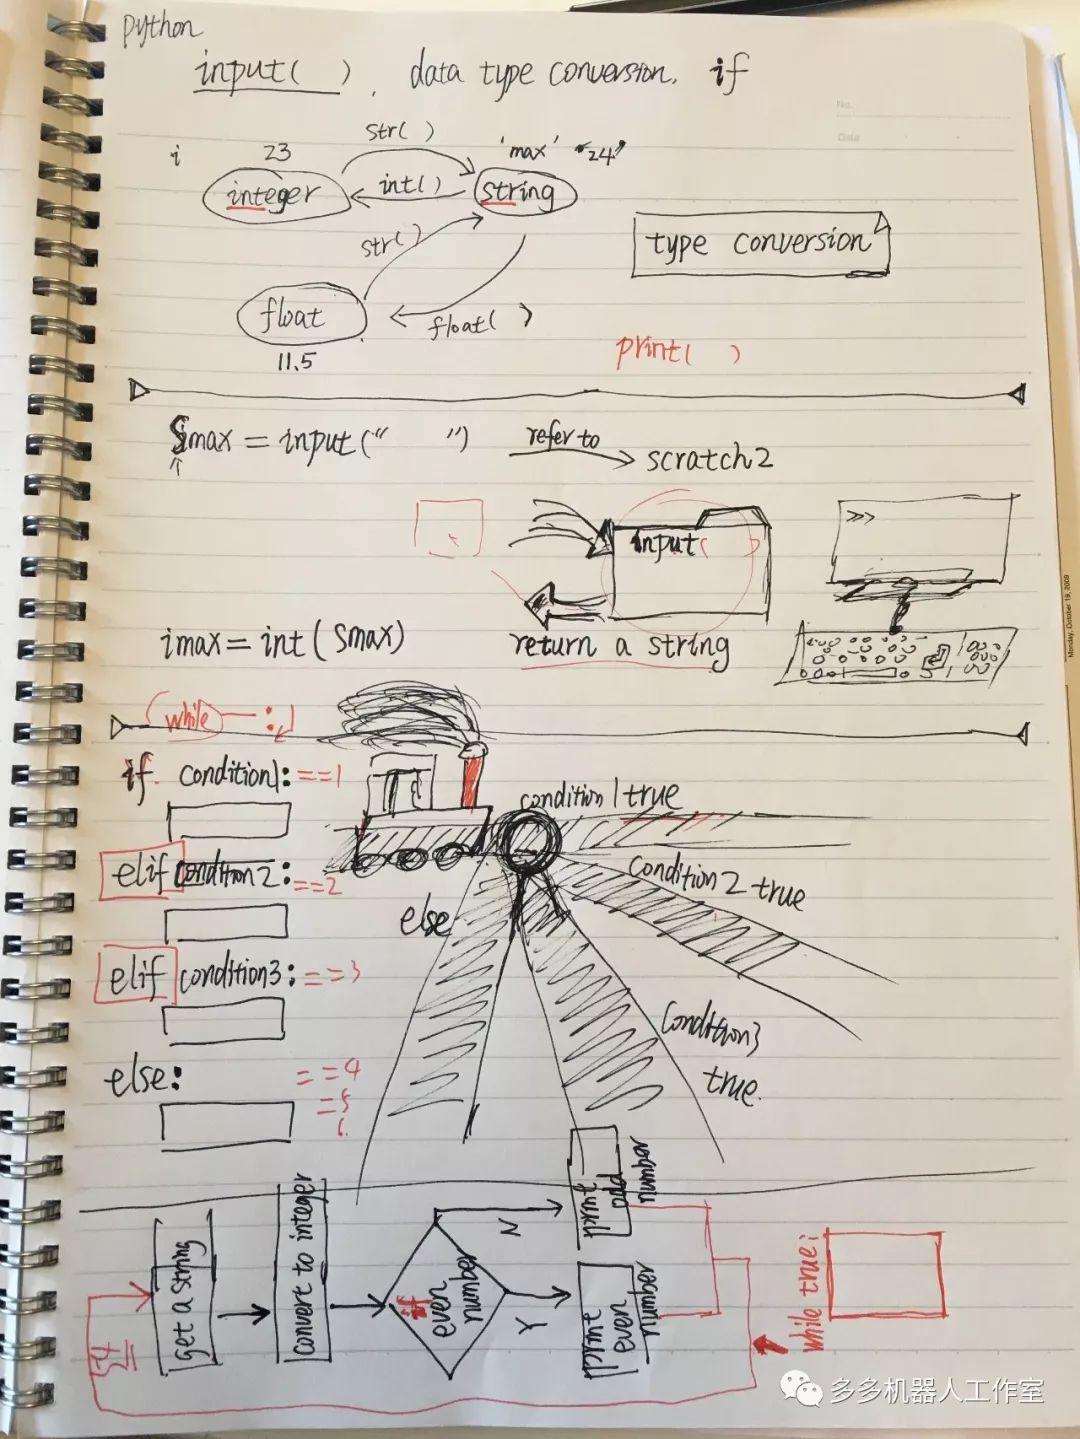 python
input( ) , data type conversion, if
No.
Date
str( )
i 23 'max' "24"
integer int( ) string
str( )
type conversion
float float( )
11.5
print( )
Smax = input(" ") refer to scratch2
input( )
>>>
imax = int(Smax)
return a string
Monday, October 19, 2009
while :
if condition1: ==1
condition1 true
elif condition2: ==2
condition2 true
else
elif condition3: ==3
condition3
true.
else: ==4
=5
6.
get a string
convert to integer
if even number
N
print odd number
Y
print even number
while true:
多多机器人工作室